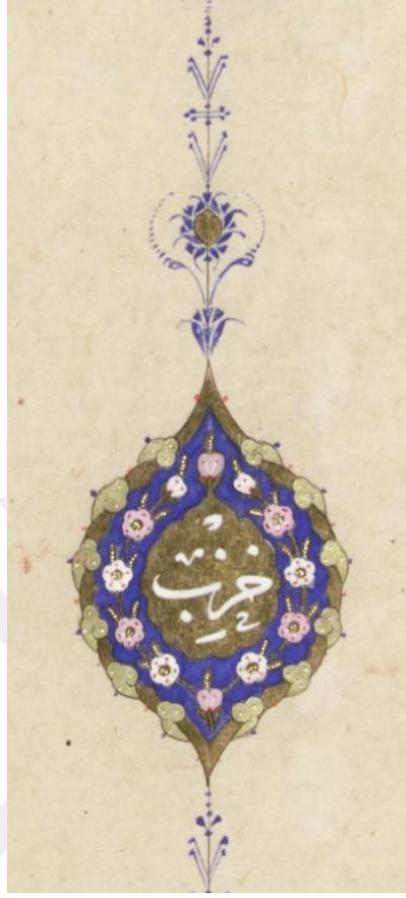 حزب